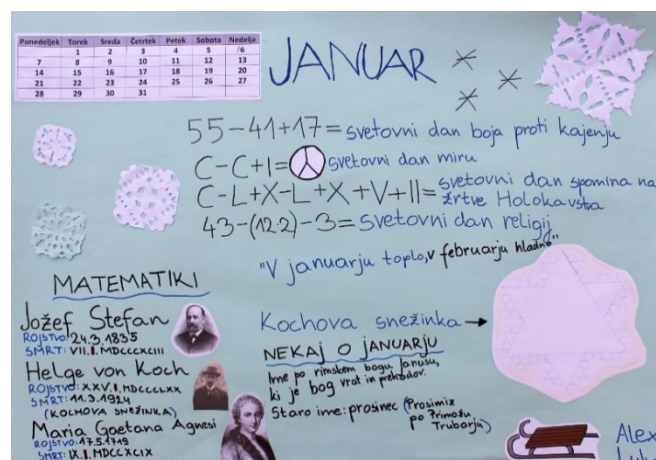 Ponedeljek Torek Sreda Četrtek Petek Sobota Nedelja
1 2 3 4 5 6
7 8 9 10 11 12 13
14 15 16 17 18 19 20
21 22 23 24 25 26 27
28 29 30 31
JANUAR
55-41+17= svetovni dan boja proti kajenju
C-C+I= svetovni dan miru
C-L+X-L+X+V+II= svetovni dan spomina na
žrtve Holokavsta
43-(12·2)-3= svetovni dan religij
"V januarju toplo, v februarju hladno"
MATEMATIKI
Jožef Stefan
ROJSTVO: 24.3.1835
SMRT: VII.I.MDCCCXCIII
Helge von Koch
ROJSTVO: XXV.I.MDCCCLXX
SMRT: 11.3.1924
(KOCHOVA SNEŽINKA)
Maria Gaetana Agnesi
ROJSTVO: 17.5.1719
SMRT: IX.I.MDCCXCIX
Kochova snežinka →
NEKAJ O JANUARJU
Ime po rimskem bogu Janusu,
ki je bog vrat in prehodov.
Staro ime: prosinec (Prosimiz
po Primožu
Trubarju)
Alex